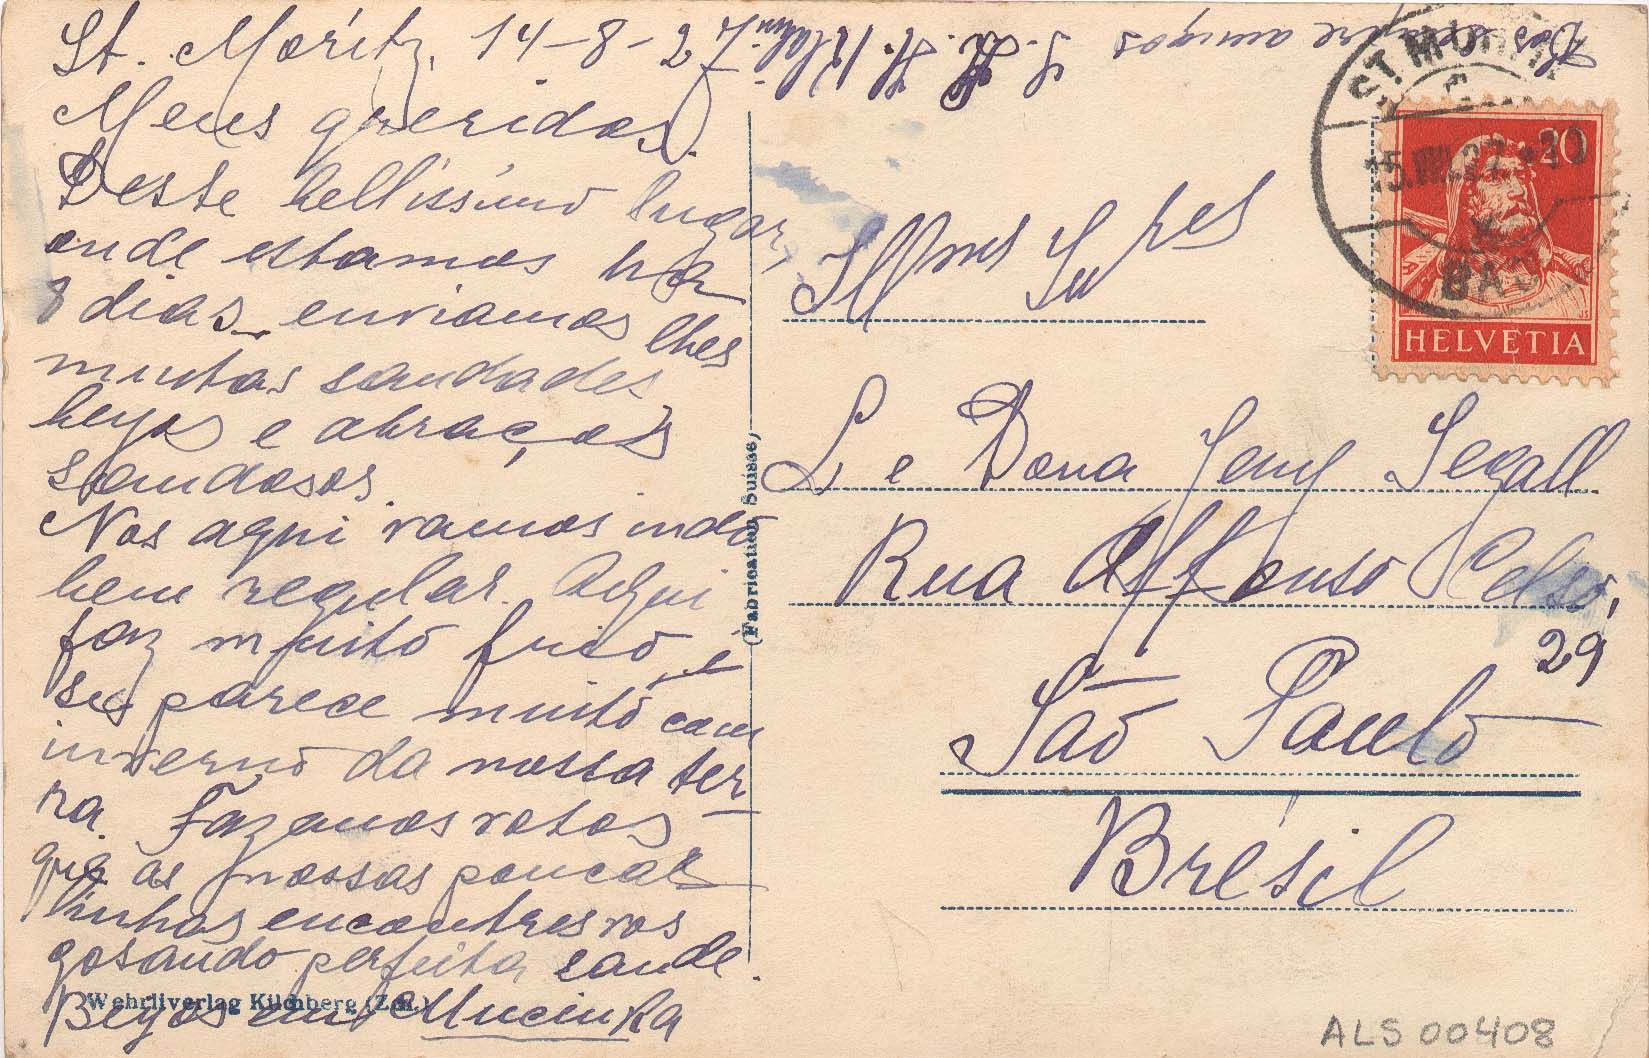 St. Moritz, 14-8-27
Meus queridos.
Deste bellissimo lugar,
onde estamos ha
8 dias enviamos lhes
muitas saudades
beijos e abraços
saudosos.
Nos aqui vamos indo
bem regular. Aqui
faz muito frio, e
se parece muito com
inverno da nossa ter-
ra. Fazemos votos
que as nossas poucas
linhas encontres vos
gosando perfeita saude.
Beijos
Dos sempre amigos
(Fabrication Suisse)
Wehrliverlag Kilchberg (Zch.)
ST. MORITZ
15.VIII.27
BAD
10
HELVETIA
Illmos Snres
L e Dona Jeny Segall
Rua Affonso Celso,
29
São Paulo
Brésil
ALS 00408